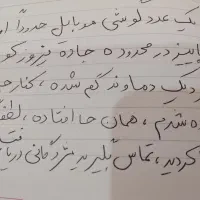 یک عدد گوشی موبایل حدوداً
پاییز در محدوده جاده فیروزکو
نزدیک دماوند گم شده، کنار
شدم، همان جا افتاده، لطفا
کردید، تماس بگیرید مژدگانی